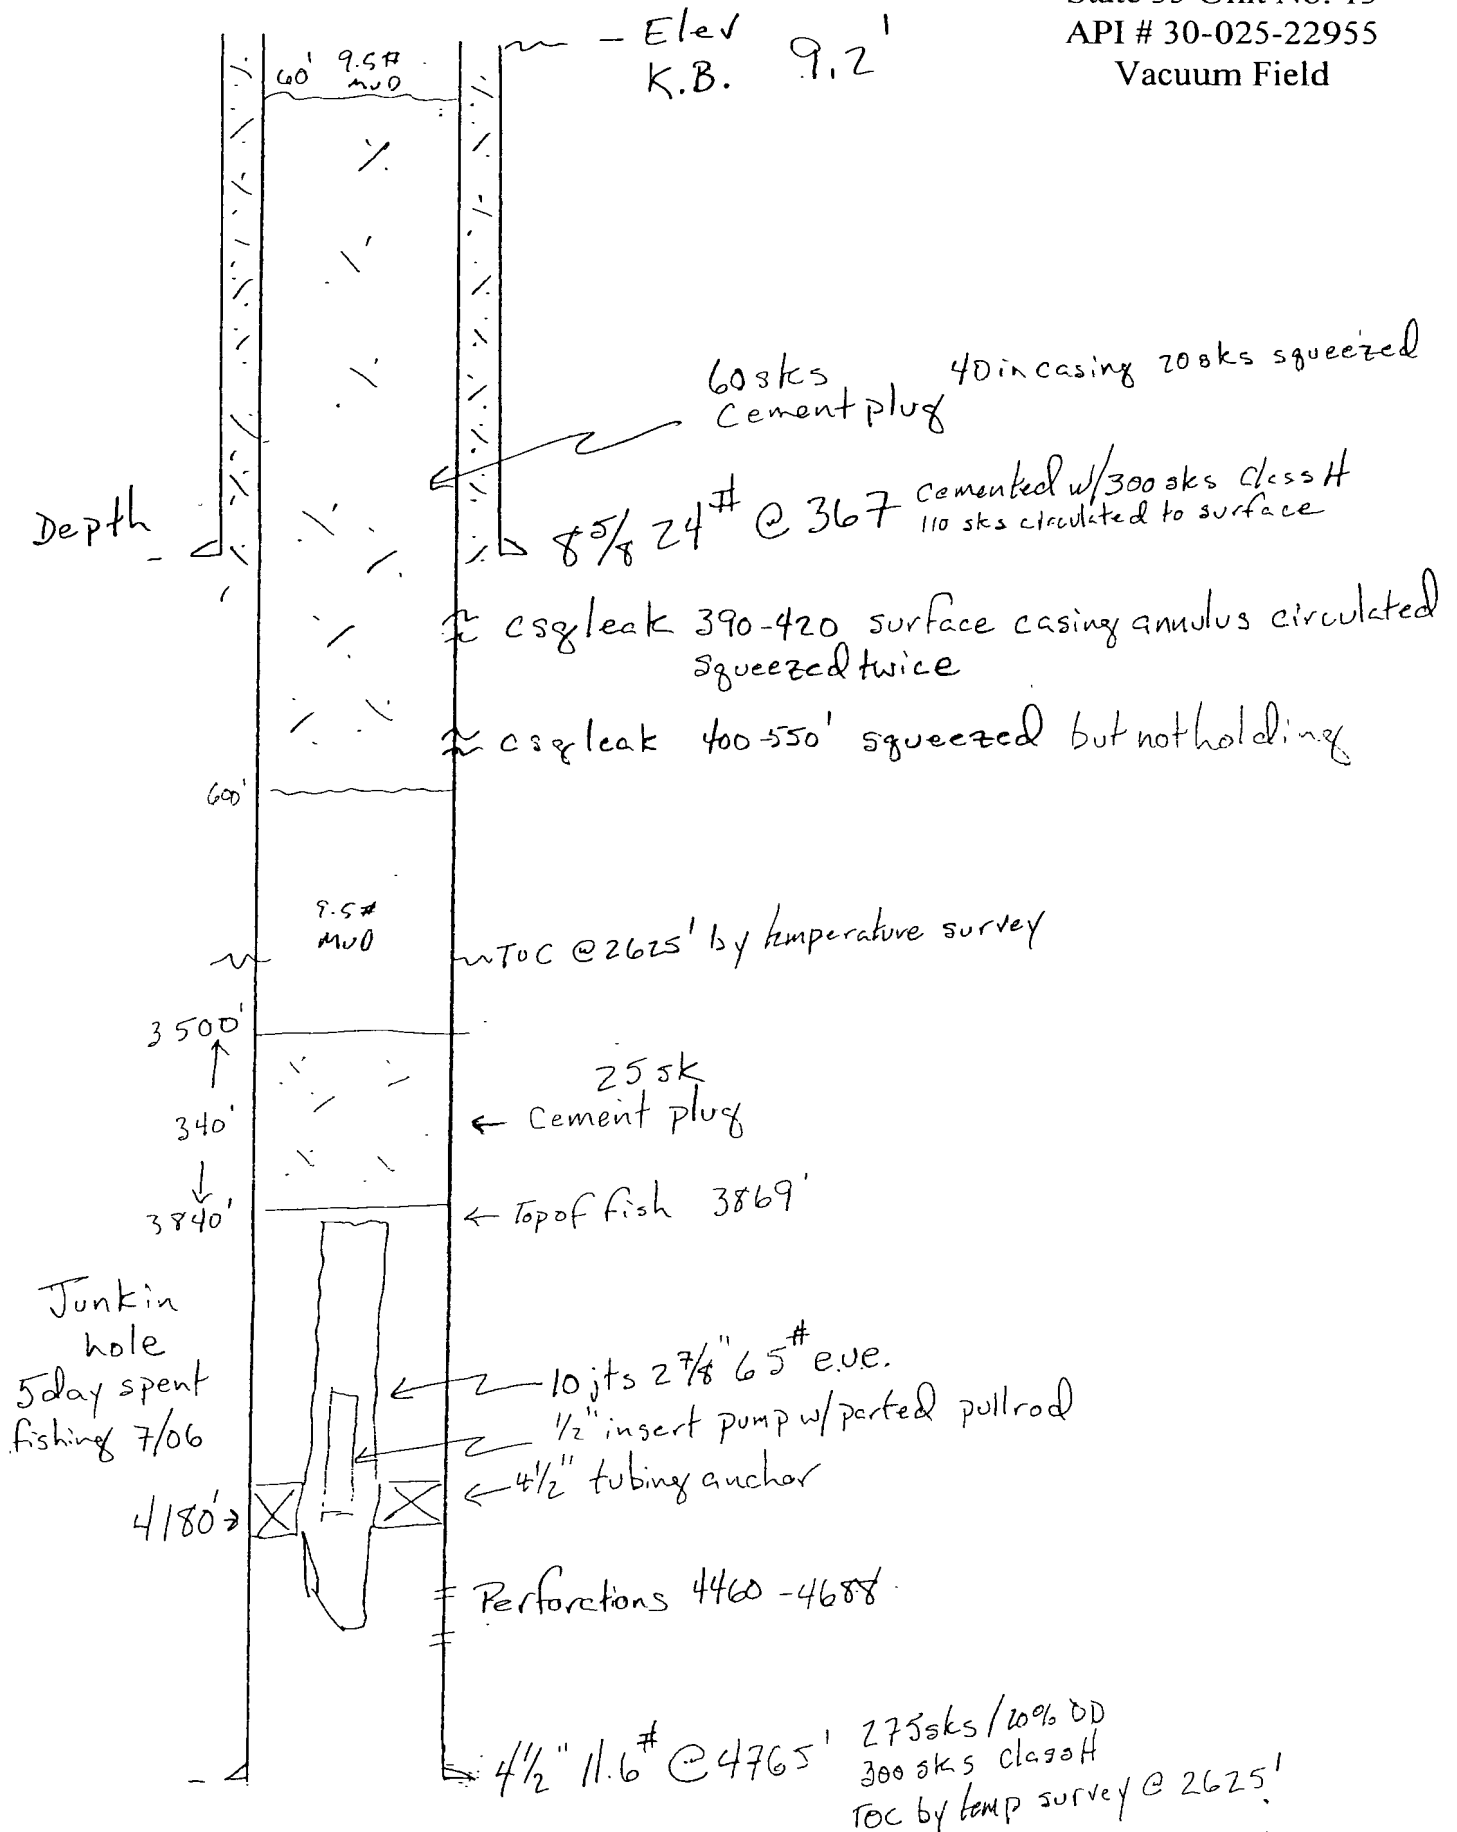 API # 30-025-22955
Vacuum Field
- Elev
K.B. 9.2'
60' 9.5#
MUD
60 sks 40 in casing 20 sks squeezed
Cement plug
Depth
8 5/8 24# @ 367 Cemented w/300 sks Class H
110 sks circulated to surface
csg leak 390-420 surface casing annulus circulated
squeezed twice
csg leak 400-550' squeezed but not holding
600'
9.5#
MUD
TOC @ 2625' by temperature survey
3500'
25 sk
340' ← Cement plug
3840' ← Top of fish 3869'
Junk in
hole
5 day spent
fishing 7/06
10 jts 2 7/8" 6 5# e.u.e.
1/2" insert pump w/ parted pullrod
4 1/2" tubing anchor
4180'
Perforations 4460 - 4688
4 1/2" 11.6# @ 4765' 275 sks / 20% DD
300 sks Class H
TOC by temp survey @ 2625'